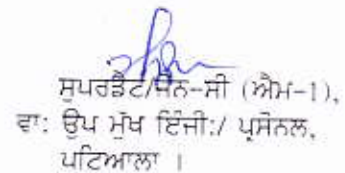 ਸੁਪਰਡੈਂਟ/ਜੈਨ-ਸੀ (ਐਮ-1),
ਵਾ: ਉਪ ਮੁੱਖ ਇੰਜੀ:/ ਪ੍ਰਸੋਨਲ,
ਪਟਿਆਲਾ ।